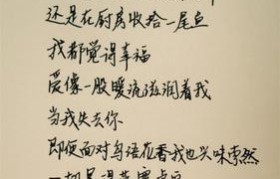 还是在厨房收拾一尾鱼
我都觉得幸福
爱像一股暖流滋润着我
当我失去你
即便面对鸟语花香我也兴味索然